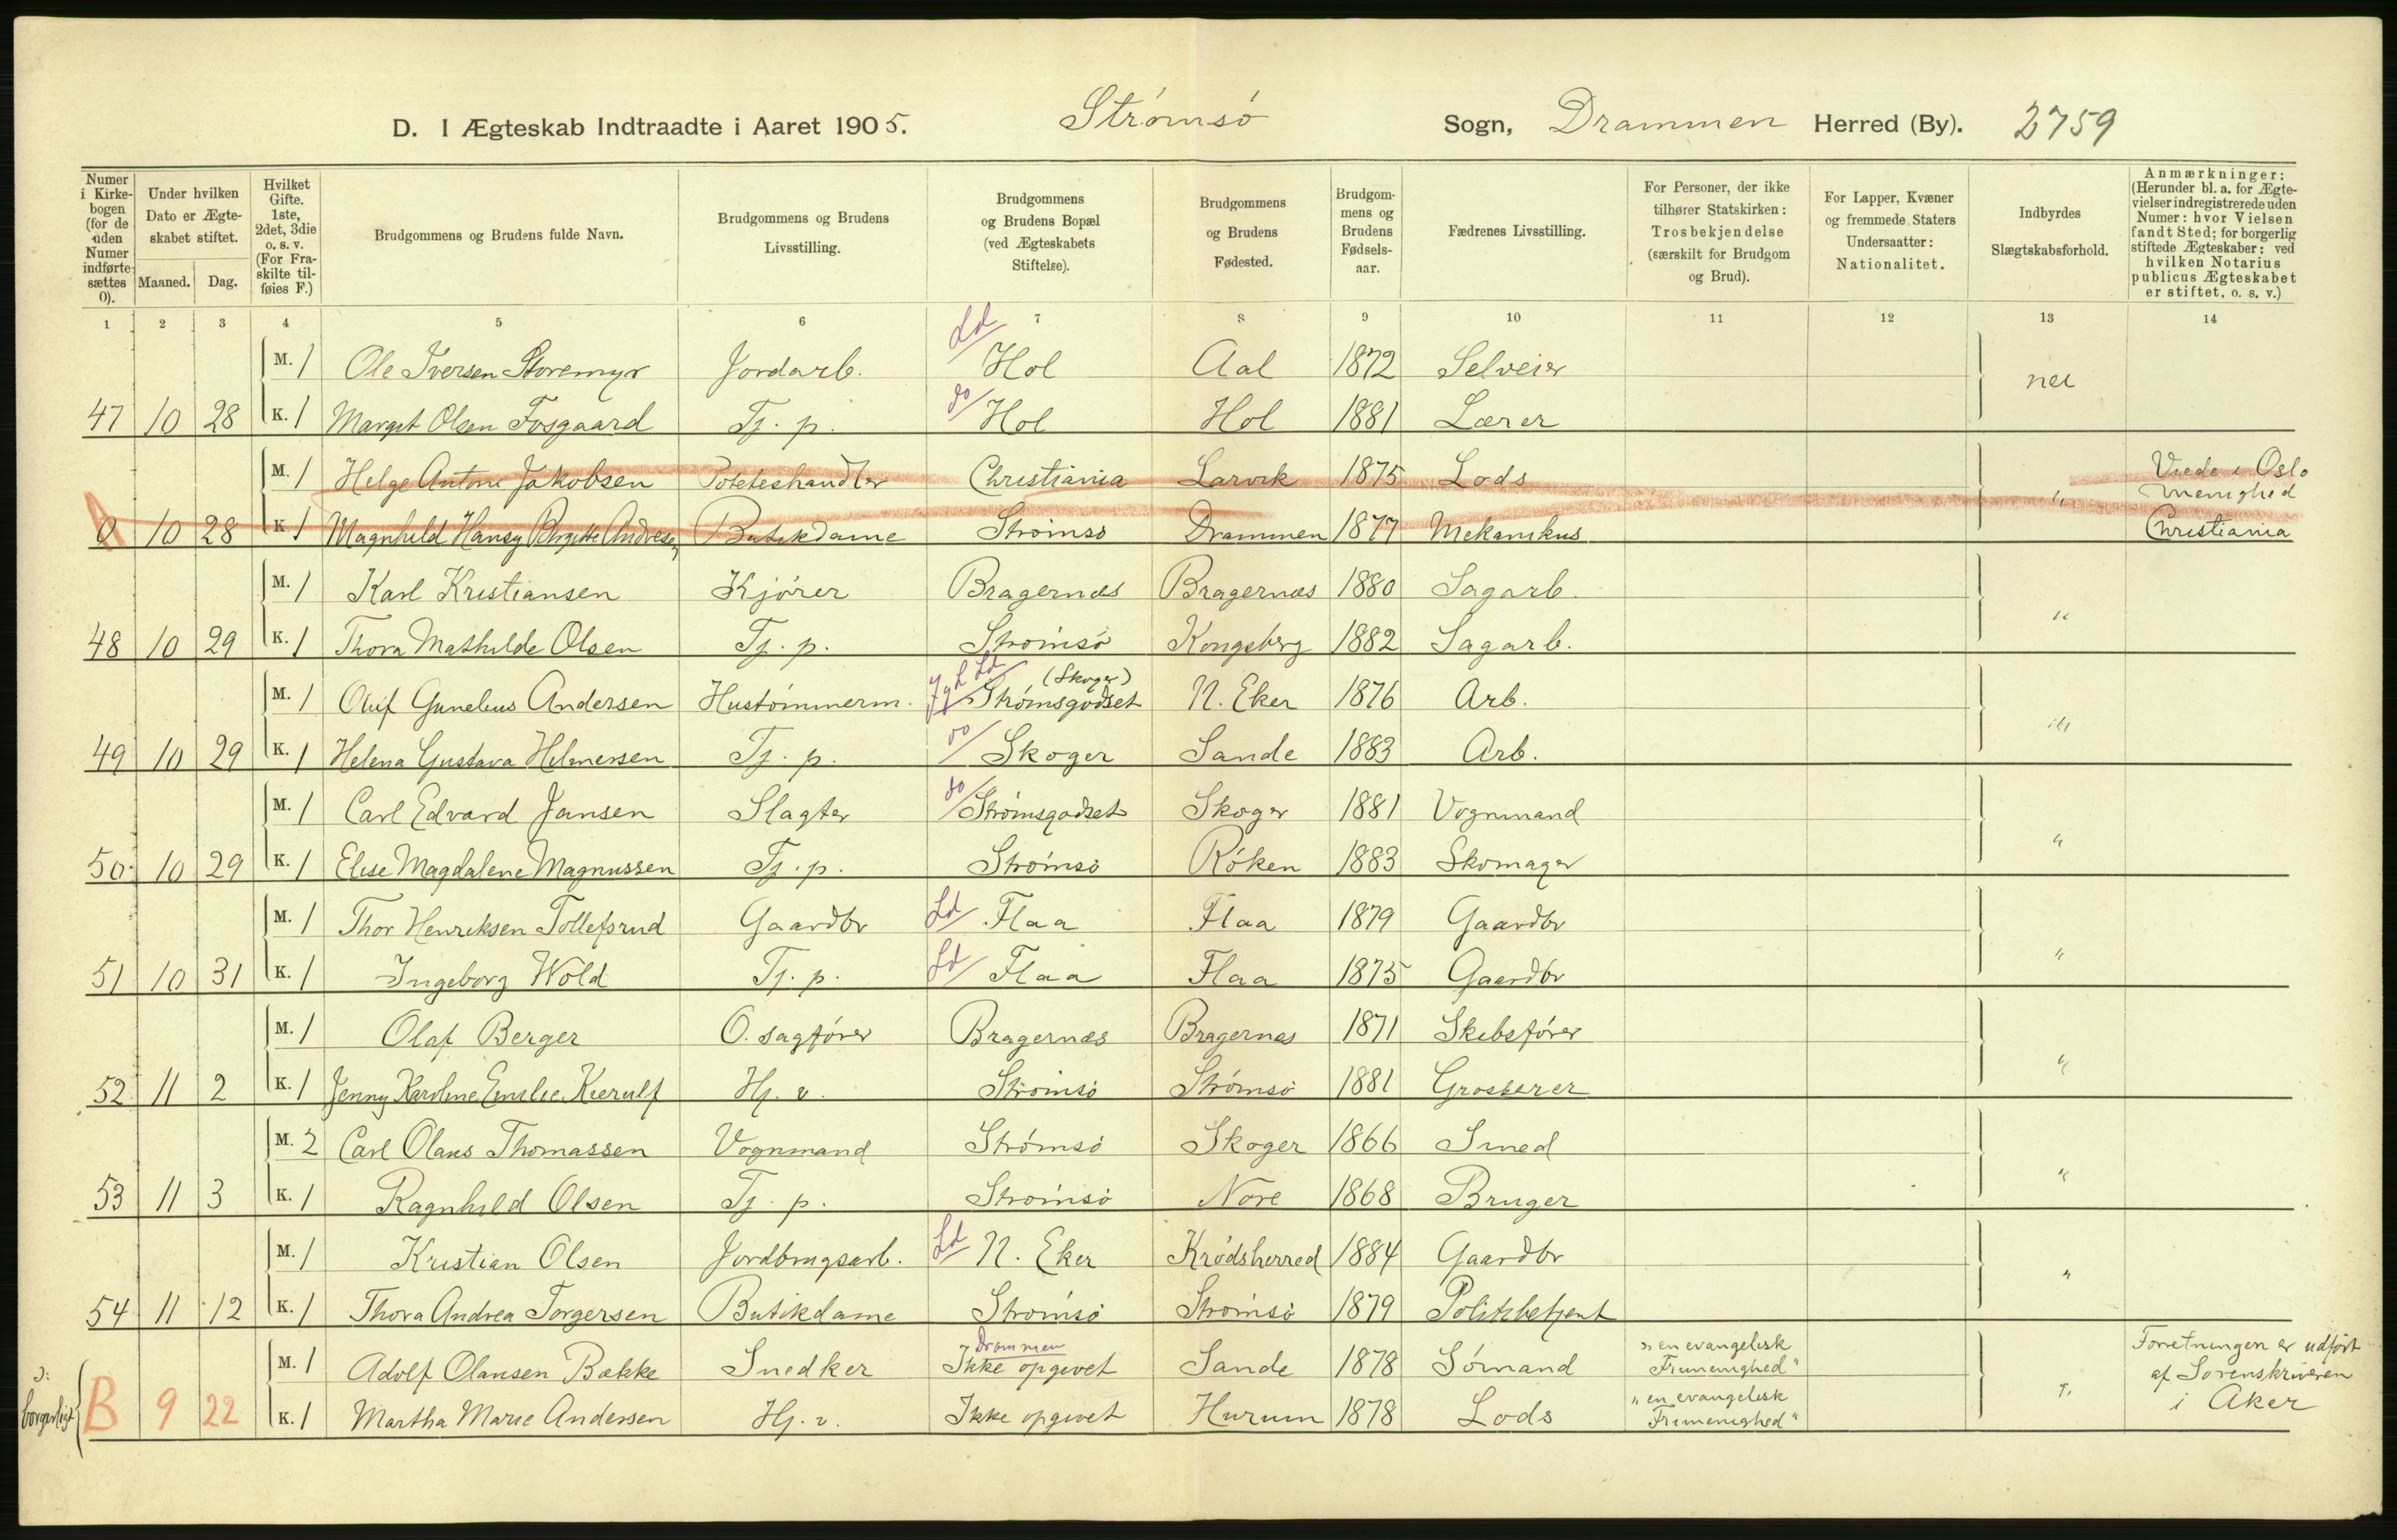 D. I Ægteskab Indtraadte i Aaret 1905. Strømsø Sogn, Drammen Herred (By). 2759
Numer i Kirkebogen (for de uden Numer indførte sættes 0). Under hvilken Dato er Ægteskabet stiftet. Maaned. Dag. Hvilket Gifte. 1ste, 2det, 3die o. s. v. (For Fraskilte tilføies F.) Brudgommens og Brudens fulde Navn. Brudgommens og Brudens Livsstilling. Brudgommens og Brudens Bopæl (ved Ægteskabets Stiftelse). Brudgommens og Brudens Fødested. Brudgommens og Brudens Fødselsaar. Fædrenes Livsstilling. For Personer, der ikke tilhører Statskirken: Trosbekjendelse (særskilt for Brudgom og Brud). For Lapper, Kvæner og fremmede Staters Undersaatter: Nationalitet. Indbyrdes Slægtskabsforhold. Anmærkninger: (Herunder bl. a. for Ægtevielser indregistrerede uden Numer: hvor Vielsen fandt Sted; for borgerlig stiftede Ægteskaber: ved hvilken Notarius publicus Ægteskabet er stiftet, o. s. v.)
1 2 3 4 5 6 7 8 9 10 11 12 13 14
M. 1 Ole Iversen Storemyr Jordarb. Ld Hol Aal 1872 Selveier nei
47 10 28 K. 1 Margit Olsen Fosgaard Tj. p. do Hol Hol 1881 Lærer
M. 1 Helge Antoni Jakobsen Poteteshandler Christiania Larvik 1875 Lods " Viede i Oslo menighed
0 10 28 K. 1 Magnhild Hansy Birgitte Andresen Butikdame Strømsø Drammen 1877 Mekanikus Christiania
M. 1 Karl Kristiansen Kjører Bragernæs Bragernæs 1880 Sagarb. "
48 10 29 K. 1 Thora Mathilde Olsen Tj. p. Strømsø Kongsberg 1882 Sagarb.
M. 1 Oluf Gunelius Andersen Hustømmerm. Ld (Skoger) Strømsgodset N. Eker 1876 Arb. "
49 10 29 K. 1 Helena Gustava Helmersen Tj. p. do Skoger Sande 1883 Arb.
M. 1 Carl Edvard Jansen Slagter do Strømsgodset Skoger 1881 Vognmand "
50 10 29 K. 1 Elise Magdalene Magnussen Tj. p. Strømsø Røken 1883 Skomager
M. 1 Thor Henriksen Tollefsrud Gaardbr Ld Flaa Flaa 1879 Gaardbr "
51 10 31 K. 1 Ingeborg Wold Tj. p. Ld Flaa Flaa 1875 Gaardbr
M. 1 Olaf Berger O. sagfører Bragernæs Bragernæs 1871 Skibsfører "
52 11 2 K. 1 Jenny Karoline Emilie Kierulf Hj. v. Strømsø Strømsø 1881 Grosserer
M. 2 Carl Olaus Thomassen Vognmand Strømsø Skoger 1866 Smed "
53 11 3 K. 1 Ragnhild Olsen Tj. p. Strømsø Nore 1868 Bruger
M. 1 Kristian Olsen Jordbrugsarb. Ld N. Eker Krødsherred 1884 Gaardbr "
54 11 12 K. 1 Thora Andrea Torgersen Butikdame Strømsø Strømsø 1879 Politibetjent
M. 1 Adolf Olausen Bakke Snedker Drammen Ikke opgivet Sande 1878 Sømand "en evangelisk Frimenighed" " Forretningen er udført af Sorenskriveren
ɔ: borgerligt B 9 22 K. 1 Martha Marie Andersen Hj. v. Ikke opgivet Hurum 1878 Lods "en evangelisk Frimenighed" i Aker